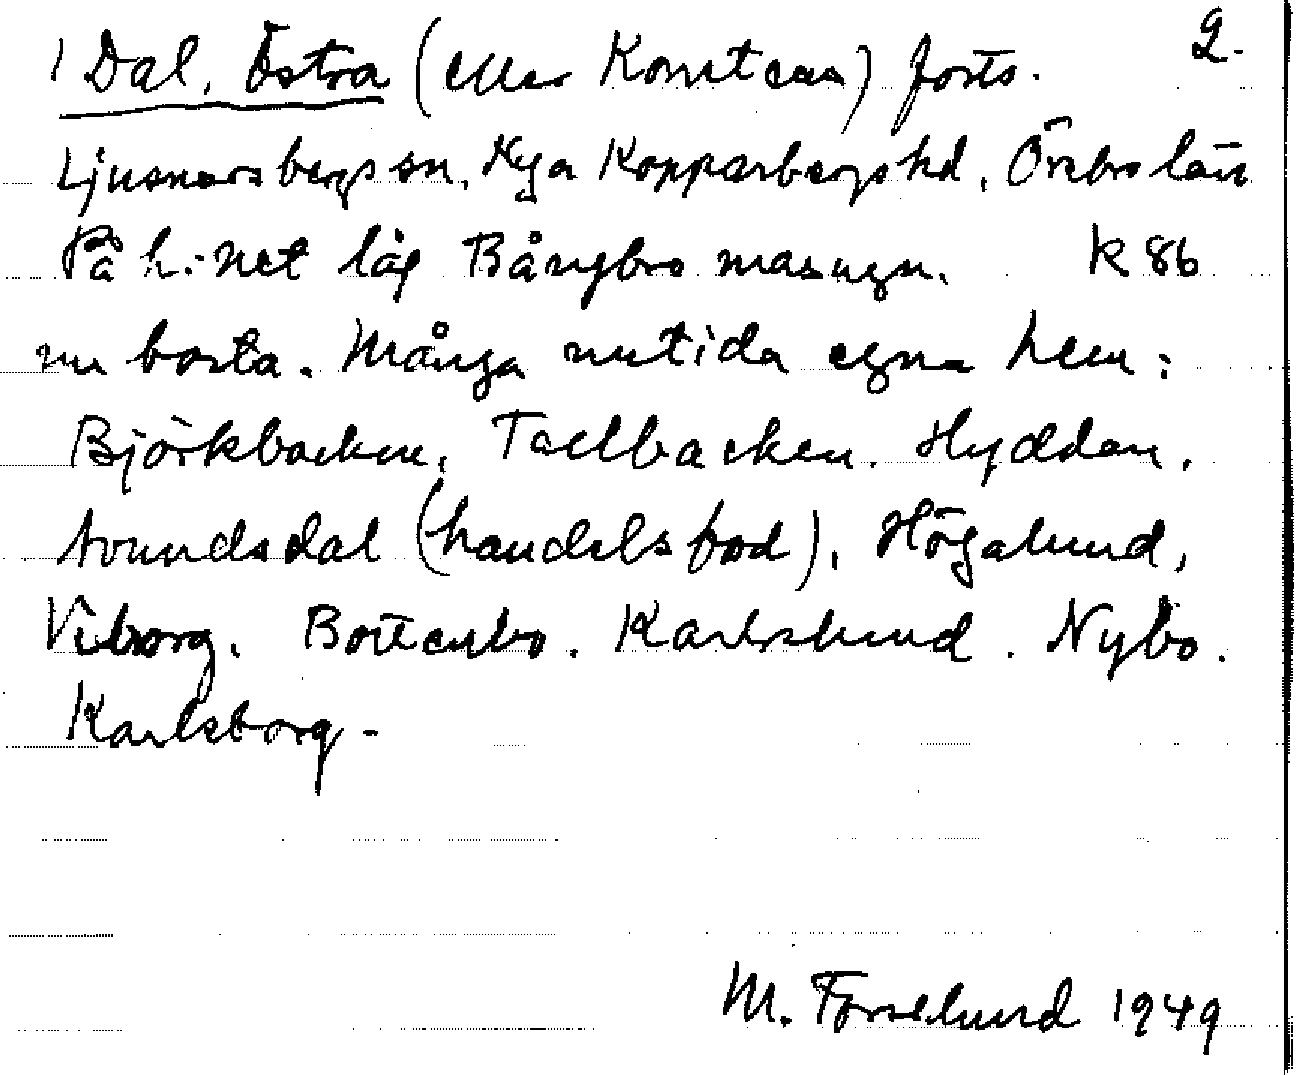 1 Dal, Östra (eller Konstens) forts. 2.
Ljusnarsbergs sn, Nya Kopparbergs hd, Örebro län
På h:net låg Bångbro masugn. K 86
nu borta. Många nutida egna hem:
Björkbacken, Tallbacken. Hyddan,
Avundsdal (handelsbod), Högalund,
Viborg. Bortenbo. Karlslund. Nybo.
Karlsborg.
M. Forslund 1949